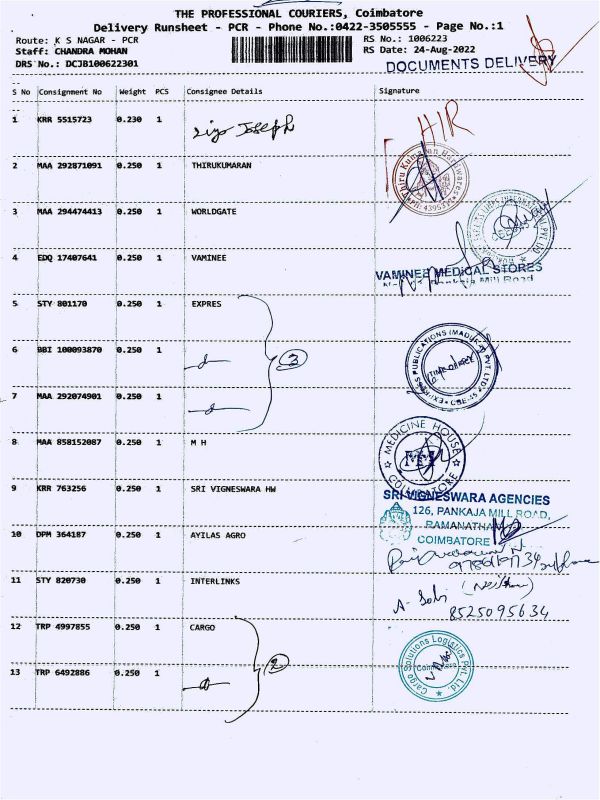 THE PROFESSIONAL COURIERS, Coimbatore
Delivery Runsheet - PCR - Phone No.:0422-3505555 - Page No.:1
Route: K S NAGAR - PCR
RS No.: 1006223
Staff: CHANDRA MOHAN
RS Date: 24-Aug-2022
DRS No.: DCJB100622301
DOCUMENTS DELIVERY
S No Consignment No Weight PCS Consignee Details Signature
1 KRR 5515723 0.230 1 Joseph
HIR
2 MAA 292871091 0.250 1 THIRUKUMARAN
Thiru Kumaran Hardwares
3 MAA 294474413 0.250 1 WORLDGATE
4 EDQ 17407641 0.250 1 VAMINEE
VAMINEE MEDICAL STORES
Pankaja Mill Road
5 STY 801170 0.250 1 EXPRES
6 BBI 100093870 0.250 1
3
EXPRESS PUBLICATIONS (MADURAI) PVT.LTD. CBE-45
7 MAA 292074901 0.250 1
8 MAA 858152087 0.250 1 M H
MEDICINE HOUSE
COIMBATORE
9 KRR 763256 0.250 1 SRI VIGNESWARA HW
SRI VIGNESWARA AGENCIES
126, PANKAJA MILL ROAD,
RAMANATHA
COIMBATORE
10 DPM 364187 0.250 1 AYILAS AGRO
11 STY 820730 0.250 1 INTERLINKS
8525095634
12 TRP 4997855 0.250 1 CARGO
2
Cargo Solutions Logistics Pvt. Ltd.
Coimbatore
13 TRP 6492886 0.250 1